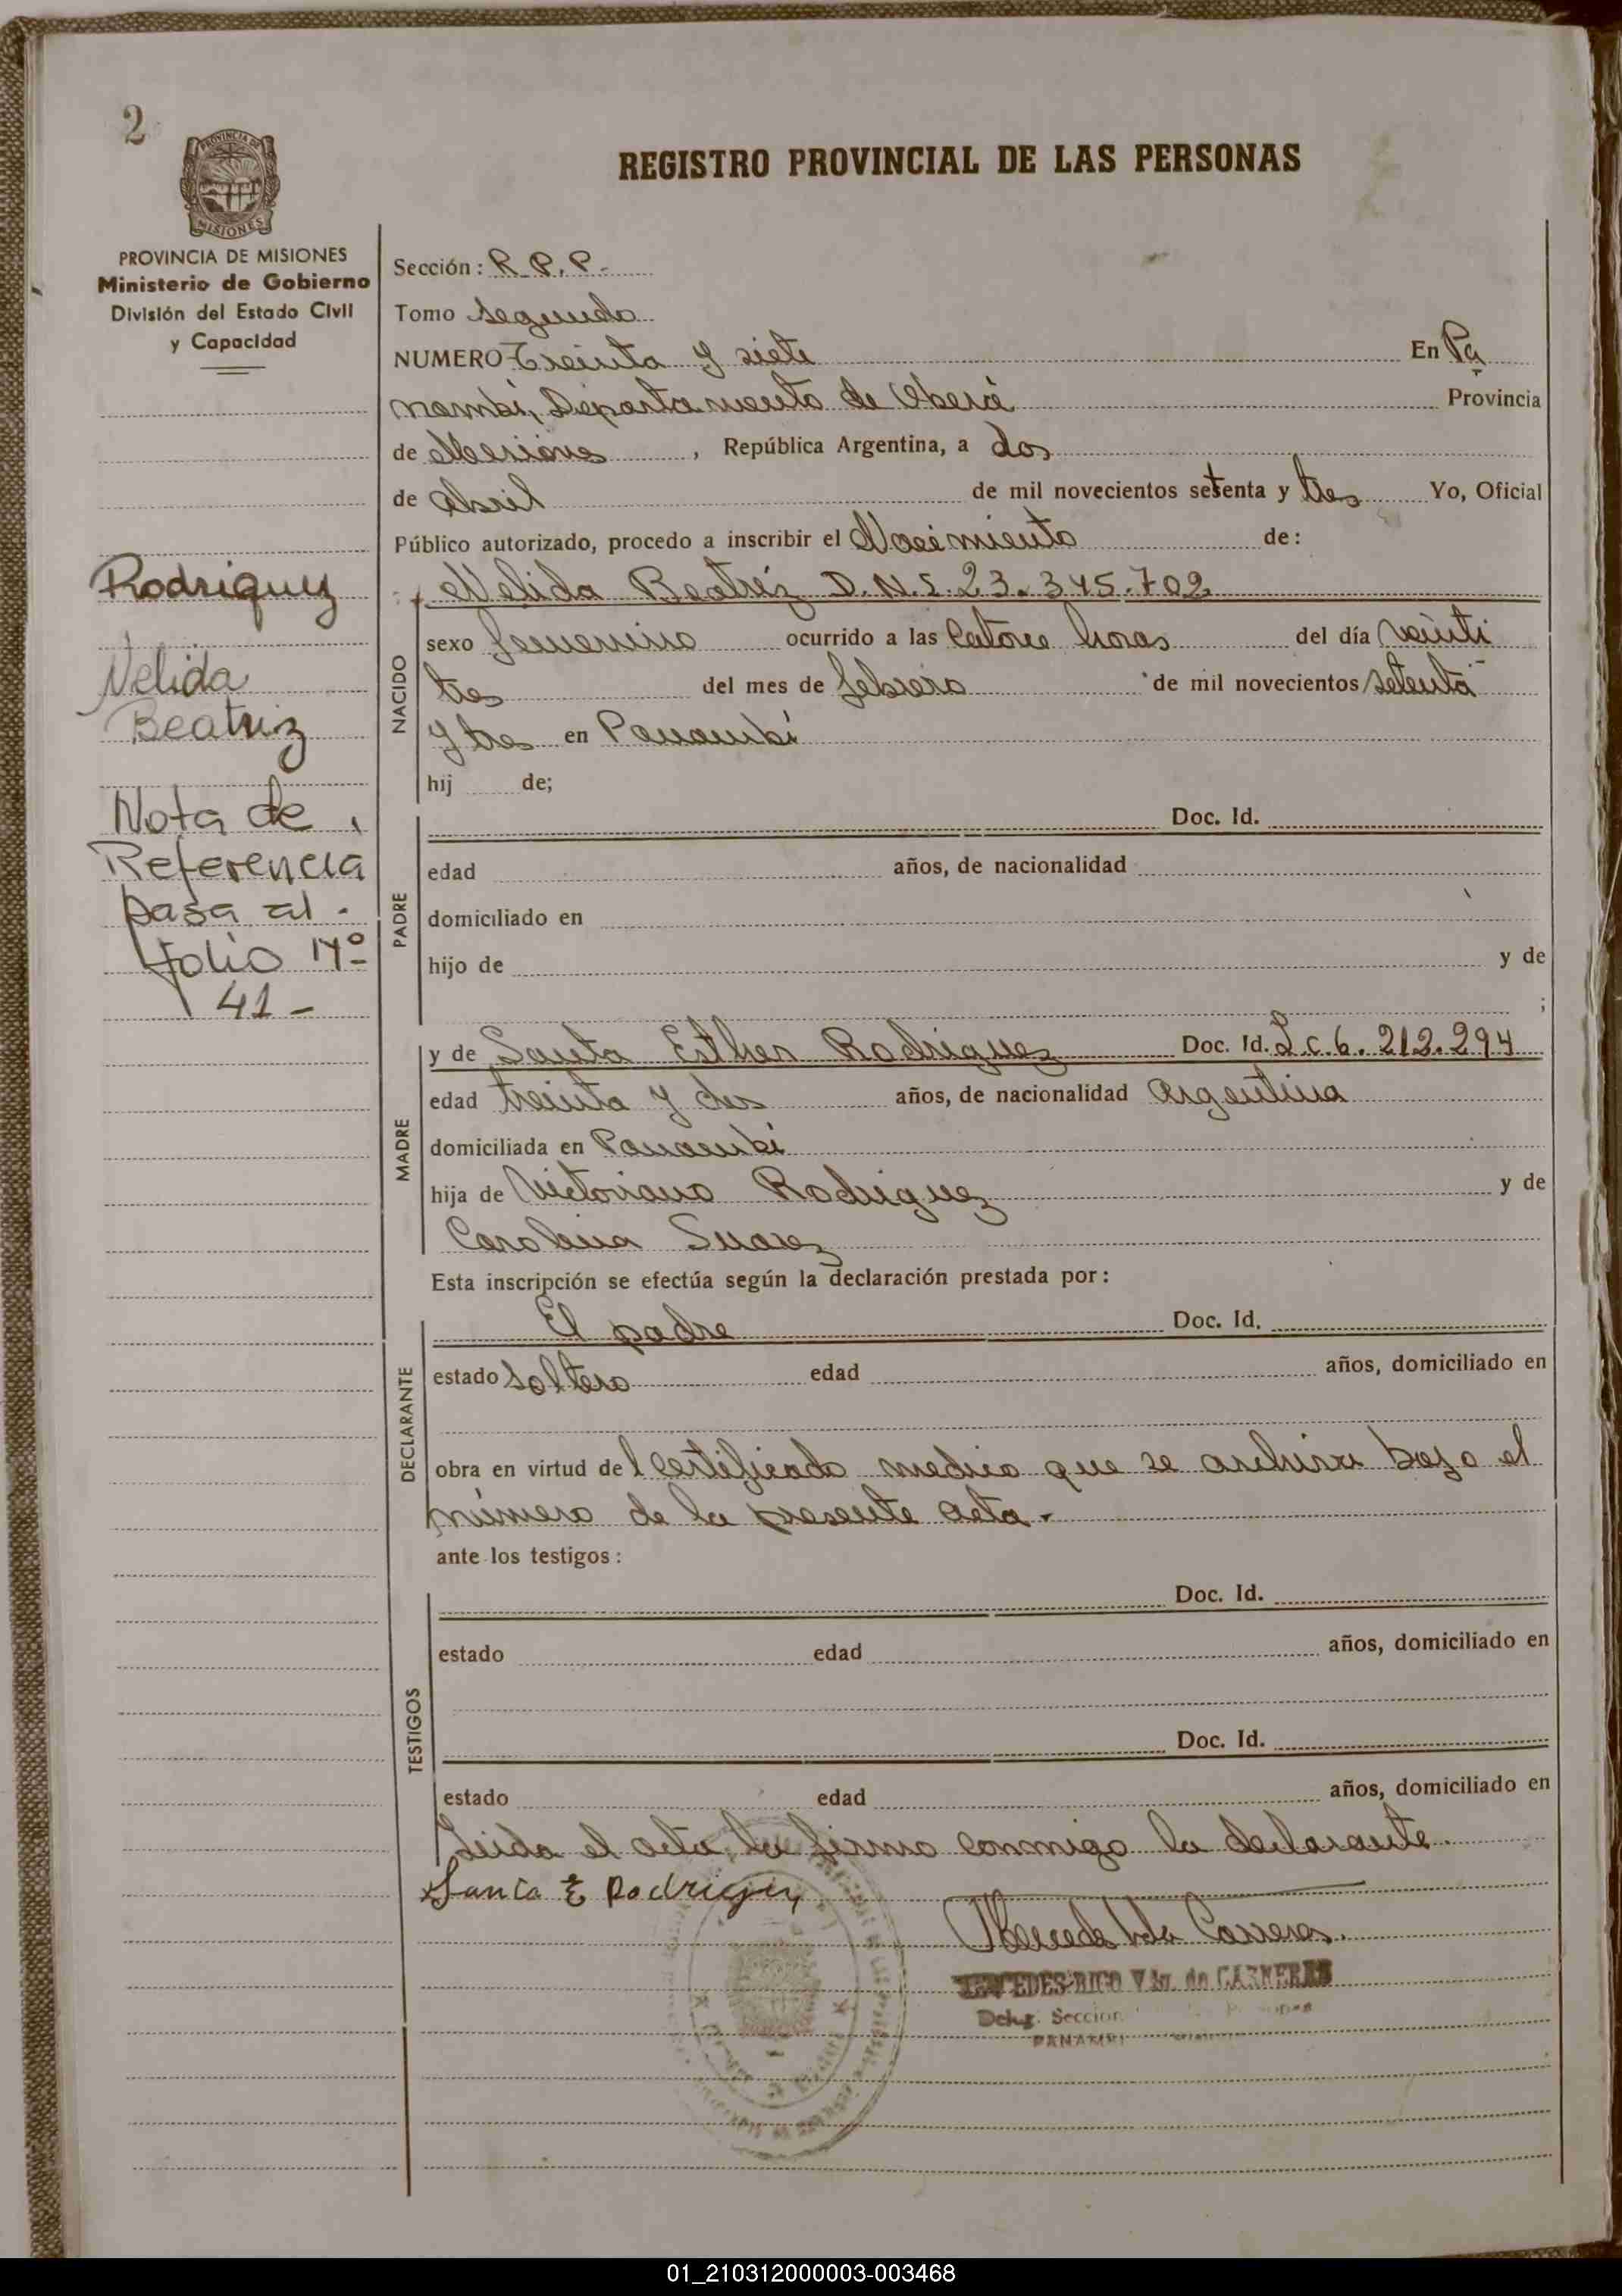 2
PROVINCIA DE
MISIONES
REGISTRO PROVINCIAL DE LAS PERSONAS
PROVINCIA DE MISIONES
Ministerio de Gobierno
División del Estado Civil
y Capacidad
Rodriguez
Nelida
Beatriz
Nota de
Referencia
pasa al
folio Nº
41-
Sección: R.P.P.-
Tomo segundo
NUMERO Treinta y siete En Pa
nambí, Departamento de Oberá Provincia
de Misiones, República Argentina, a dos
de Abril de mil novecientos setenta y tres Yo, Oficial
Público autorizado, procedo a inscribir el Nacimiento de:
NACIDO
Nelida Beatríz D.N.I. 23.345.702
sexo femenino ocurrido a las Catorce horas del día veinti
tres del mes de febrero de mil novecientos setenta
y tres en Panambí
hij de;
PADRE
Doc. Id.
edad años, de nacionalidad
domiciliado en
hijo de y de
;
MADRE
y de Santa Esther Rodriguez Doc. Id. L.c.6.212.294
edad treinta y dos años, de nacionalidad Argentina
domiciliada en Panambí
hija de Victoriano Rodriguez y de
Carolina Suarez
Esta inscripción se efectúa según la declaración prestada por:
DECLARANTE
El padre Doc. Id.
estado soltero edad años, domiciliado en
obra en virtud del certificado medico que se archiva bajo el
número de la presente acta.-
ante los testigos:
TESTIGOS
Doc. Id.
estado edad años, domiciliado en
Doc. Id.
estado edad años, domiciliado en
Leida el acta, la firma conmigo la declarante.
Santa E Rodriguez
Mercedes Carreras
MERCEDES RICO Vda. de CARRERAS
Deleg. Seccion
PANAMBI
01_210312000003-003468